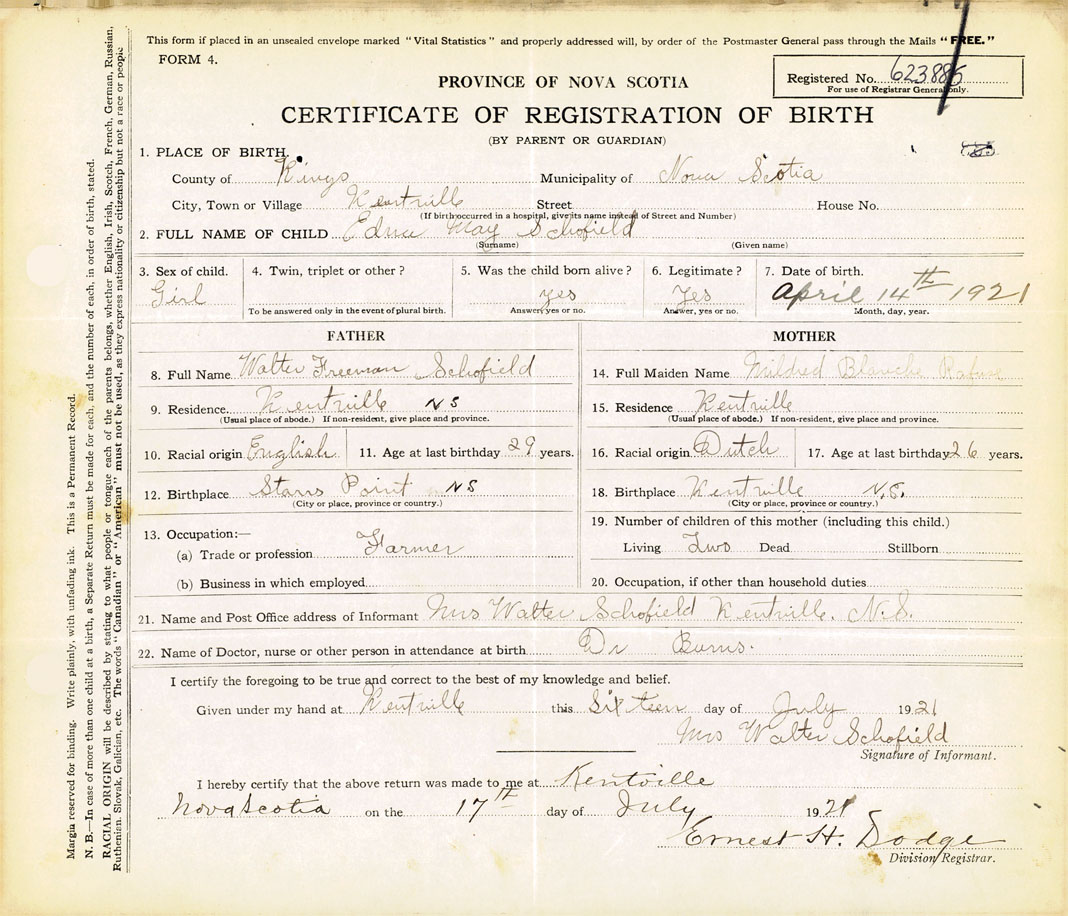 This form if placed in an unsealed envelope marked "Vital Statistics" and properly addressed will, by order of the Postmaster General pass through the Mails "FREE."
FORM 4.
Registered No. 623885
For use of Registrar General only.
PROVINCE OF NOVA SCOTIA
CERTIFICATE OF REGISTRATION OF BIRTH
(BY PARENT OR GUARDIAN)
1. PLACE OF BIRTH.
County of Kings Municipality of Nova Scotia
City, Town or Village Kentville Street House No.
(If birth occurred in a hospital, give its name instead of Street and Number)
2. FULL NAME OF CHILD Edna May Schofield
(Surname) (Given name)
3. Sex of child. 4. Twin, triplet or other? 5. Was the child born alive? 6. Legitimate? 7. Date of birth.
Girl yes Yes April 14th 1921
To be answered only in the event of plural birth. Answer, yes or no. Answer, yes or no. Month, day, year.
FATHER
8. Full Name Walter Freeman Schofield
9. Residence. Kentville NS
(Usual place of abode.) If non-resident, give place and province.
10. Racial origin English 11. Age at last birthday 29 years.
12. Birthplace Starrs Point NS
(City or place, province or country.)
13. Occupation:—
(a) Trade or profession Farmer
(b) Business in which employed
MOTHER
14. Full Maiden Name Mildred Blanche Rafuse
15. Residence Kentville
(Usual place of abode.) If non-resident, give place and province.
16. Racial origin Dutch 17. Age at last birthday 26 years.
18. Birthplace Kentville N.S.
(City or place, province or country.)
19. Number of children of this mother (including this child.)
Living Two Dead Stillborn
20. Occupation, if other than household duties
21. Name and Post Office address of Informant Mrs Walter Schofield Kentville. N.S.
22. Name of Doctor, nurse or other person in attendance at birth Dr Burns.
I certify the foregoing to be true and correct to the best of my knowledge and belief.
Given under my hand at Kentville this Sixteen day of July 1921
Mrs Walter Schofield
Signature of Informant.
I hereby certify that the above return was made to me at Kentville
Nova Scotia on the 17th day of July 1921
Ernest H. Dodge
Division Registrar.
Margin reserved for binding. Write plainly, with unfading ink. This is a Permanent Record.
N. B.—In case of more than one child at a birth, a Separate Return must be made for each, and the number of each, in order of birth, stated.
RACIAL ORIGIN will be described by stating to what people or tongue each of the parents belongs, whether English, Irish, Scotch, French, German, Russian,
Ruthenian, Slovak, Galician, etc. The words "Canadian" or "American" must not be used, as they express nationality or citizenship but not a race or people